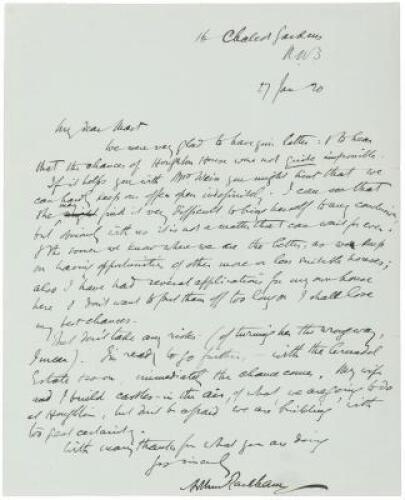 16 Chalcot Gardens
N.W.3
27 Jan 20
My dear
We were very glad to have your letter: & to hear
that the chances of Houghton House were not quite impossible.
If it helps you with you might hint that we
can hardly keep an offer open indefinitely: I can see that
she may find it very difficult to bring herself to any conclusion
but obviously with us it is not a matter that can wait for ever:
& the sooner we know where we are the better, as we keep
on having opportunities of other more or less suitable houses;
also I have had several applications for my own house
here & don't want to put them off too long or I shall lose
my best chances.
But don't take any risks – (of turning her the wrong way,
I mean). I'm ready to go further, – with the Arundel
Estate & so on, immediately the chance comes. My wife
and I build castles-in-the air, of what we are going to do
at Houghton, but don't be afraid we are building with
too great certainty.
With many thanks for what you are doing
Yrs sincerely
Arthur Rackham